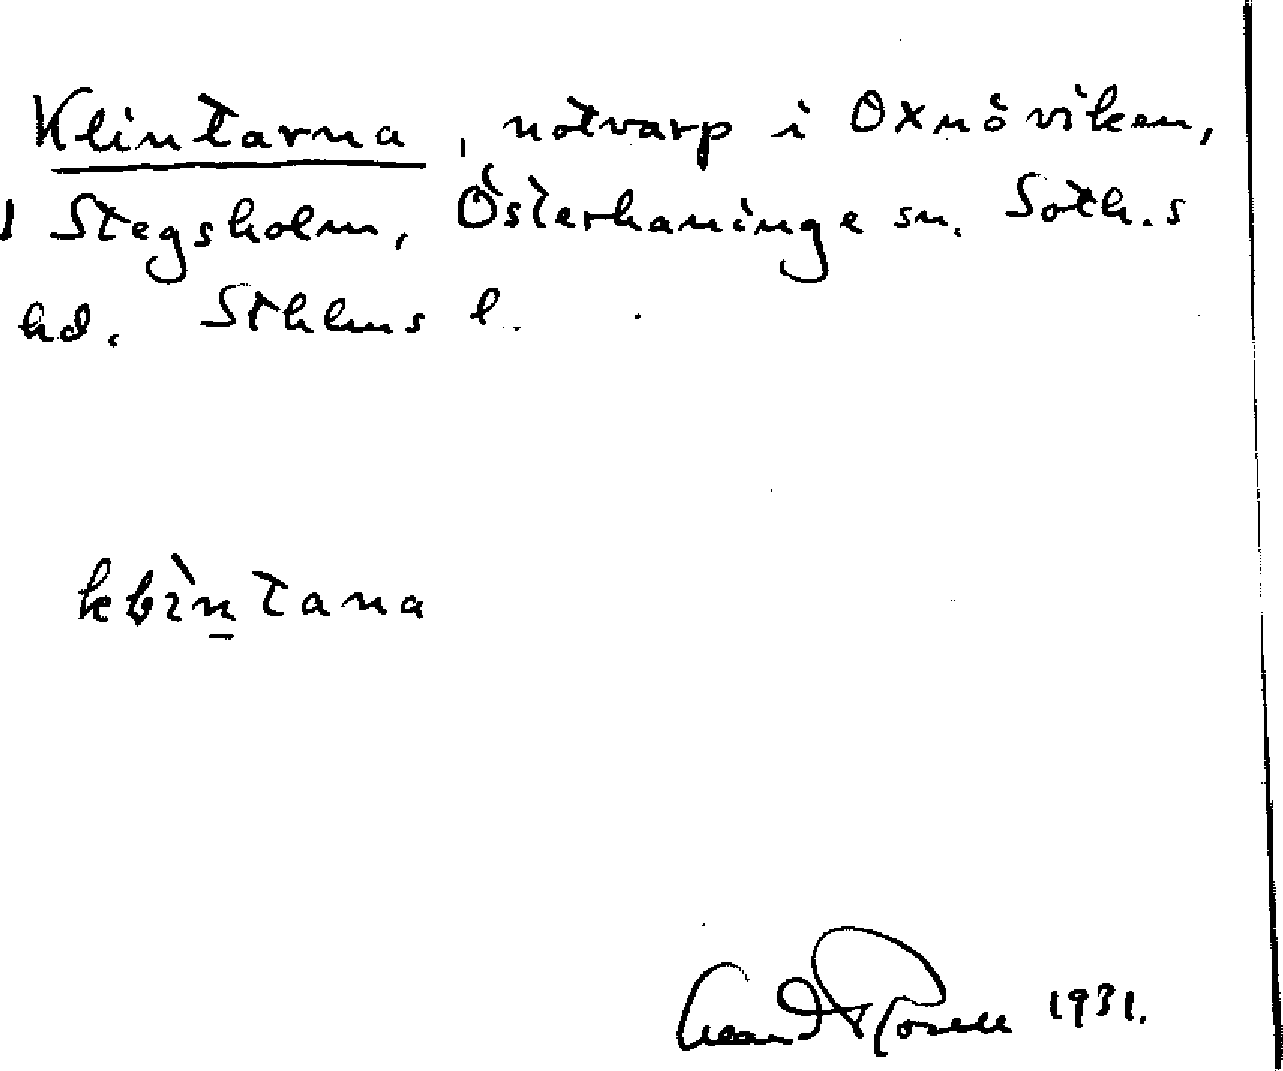 Klintarna, notvarp i Oxnöviken,
Stegsholm, Österhaninge sn. Soth.s
hd. Sthlms l.
kbìn̲tana
1931.